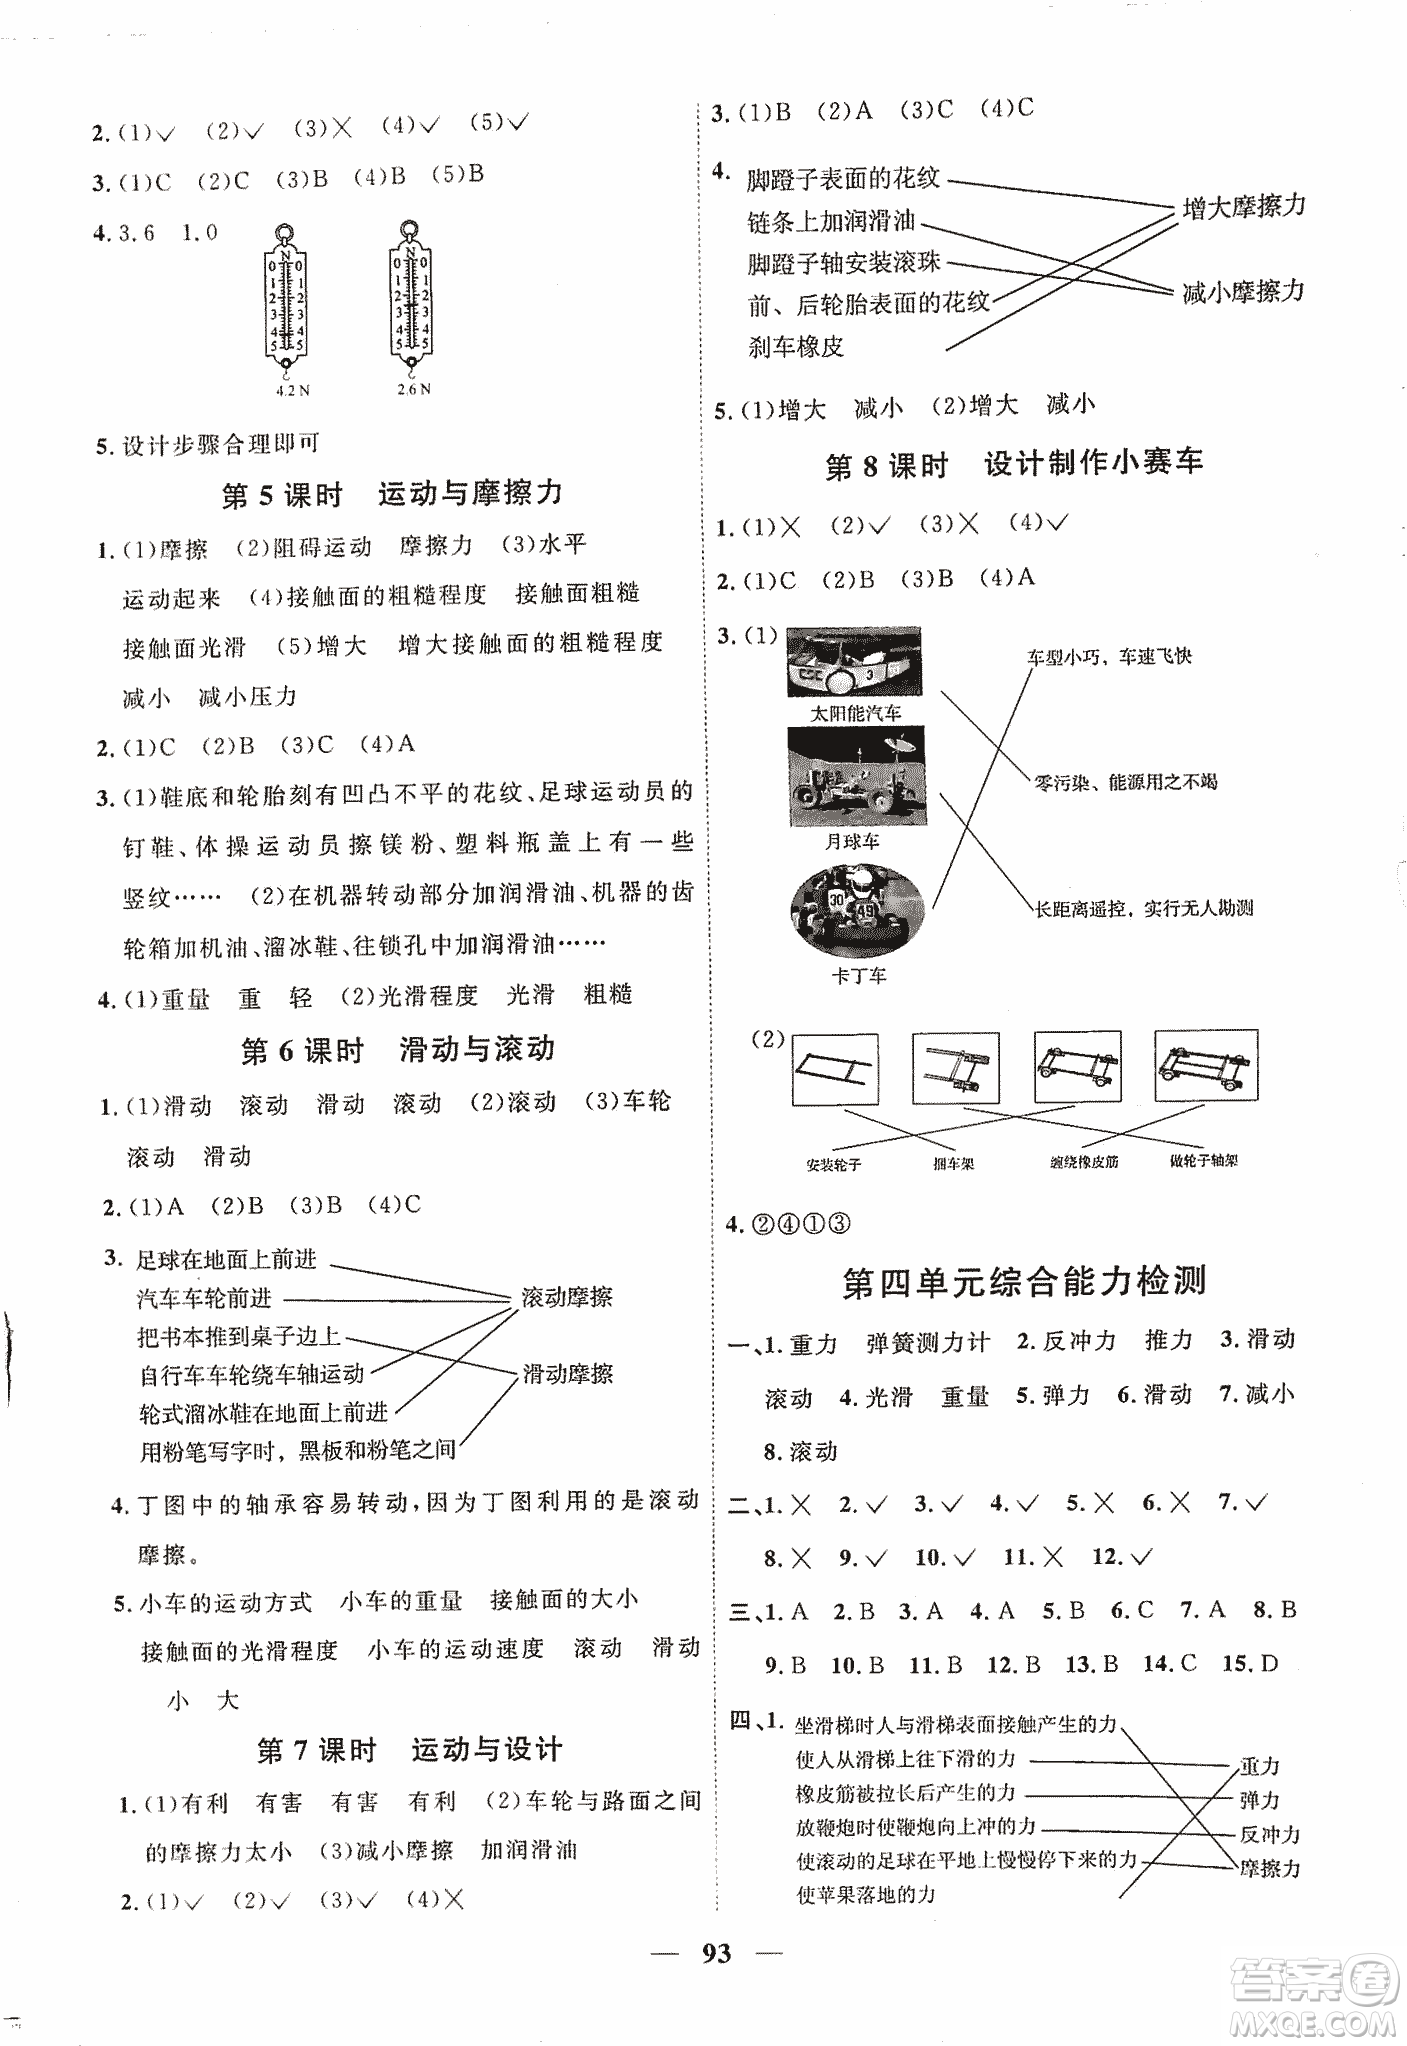 2.(1)✓ (2)✓ (3)✕ (4)✓ (5)✓
3.(1)C (2)C (3)B (4)B (5)B
4.3.6 1.0
N N
0 0 0 0
1 1 1 1
2 2 2 2
3 3 3 3
4 4 4 4
5 5 5 5
4.2 N 2.6 N
5.设计步骤合理即可
第 5 课时 运动与摩擦力
1.(1)摩擦 (2)阻碍运动 摩擦力 (3)水平
运动起来 (4)接触面的粗糙程度 接触面粗糙
接触面光滑 (5)增大 增大接触面的粗糙程度
减小 减小压力
2.(1)C (2)B (3)C (4)A
3.(1)鞋底和轮胎刻有凹凸不平的花纹、足球运动员的
钉鞋、体操运动员擦镁粉、塑料瓶盖上有一些
竖纹…… (2)在机器转动部分加润滑油、机器的齿
轮箱加机油、溜冰鞋、往锁孔中加润滑油……
4.(1)重量 重 轻 (2)光滑程度 光滑 粗糙
第 6 课时 滑动与滚动
1.(1)滑动 滚动 滑动 滚动 (2)滚动 (3)车轮
滚动 滑动
2.(1)A (2)B (3)B (4)C
3. 足球在地面上前进
汽车车轮前进 滚动摩擦
把书本推到桌子边上
自行车车轮绕车轴运动 滑动摩擦
轮式溜冰鞋在地面上前进
用粉笔写字时，黑板和粉笔之间
4.丁图中的轴承容易转动,因为丁图利用的是滚动
摩擦。
5.小车的运动方式 小车的重量 接触面的大小
接触面的光滑程度 小车的运动速度 滚动 滑动
小 大
第 7 课时 运动与设计
1.(1)有利 有害 有害 有利 (2)车轮与路面之间
的摩擦力太小 (3)减小摩擦 加润滑油
2.(1)✓ (2)✓ (3)✓ (4)✕
3.(1)B (2)A (3)C (4)C
4. 脚蹬子表面的花纹
增大摩擦力
链条上加润滑油
脚蹬子轴安装滚珠
减小摩擦力
前、后轮胎表面的花纹
刹车橡皮
5.(1)增大 减小 (2)增大 减小
第 8 课时 设计制作小赛车
1.(1)✕ (2)✓ (3)✕ (4)✓
2.(1)C (2)B (3)B (4)A
3.(1)
车型小巧，车速飞快
CSC 3
太阳能汽车
零污染、能源用之不竭
月球车
30 49
长距离遥控，实行无人勘测
卡丁车
(2)
安装轮子 捆车架 缠绕橡皮筋 做轮子轴架
4.②④①③
第四单元综合能力检测
一、1.重力 弹簧测力计 2.反冲力 推力 3.滑动
滚动 4.光滑 重量 5.弹力 6.滑动 7.减小
8.滚动
二、1.✕ 2.✓ 3.✓ 4.✓ 5.✕ 6.✕ 7.✓
8.✕ 9.✓ 10.✓ 11.✕ 12.✓
三、1.A 2.B 3.A 4.A 5.B 6.C 7.A 8.B
9.B 10.B 11.B 12.B 13.B 14.C 15.D
四、1. 坐滑梯时人与滑梯表面接触产生的力
使人从滑梯上往下滑的力 重力
橡皮筋被拉长后产生的力 弹力
放鞭炮时使鞭炮向上冲的力 反冲力
使滚动的足球在平地上慢慢停下来的力 摩擦力
使苹果落地的力
— 93 —
答案卷
MXQE.COM